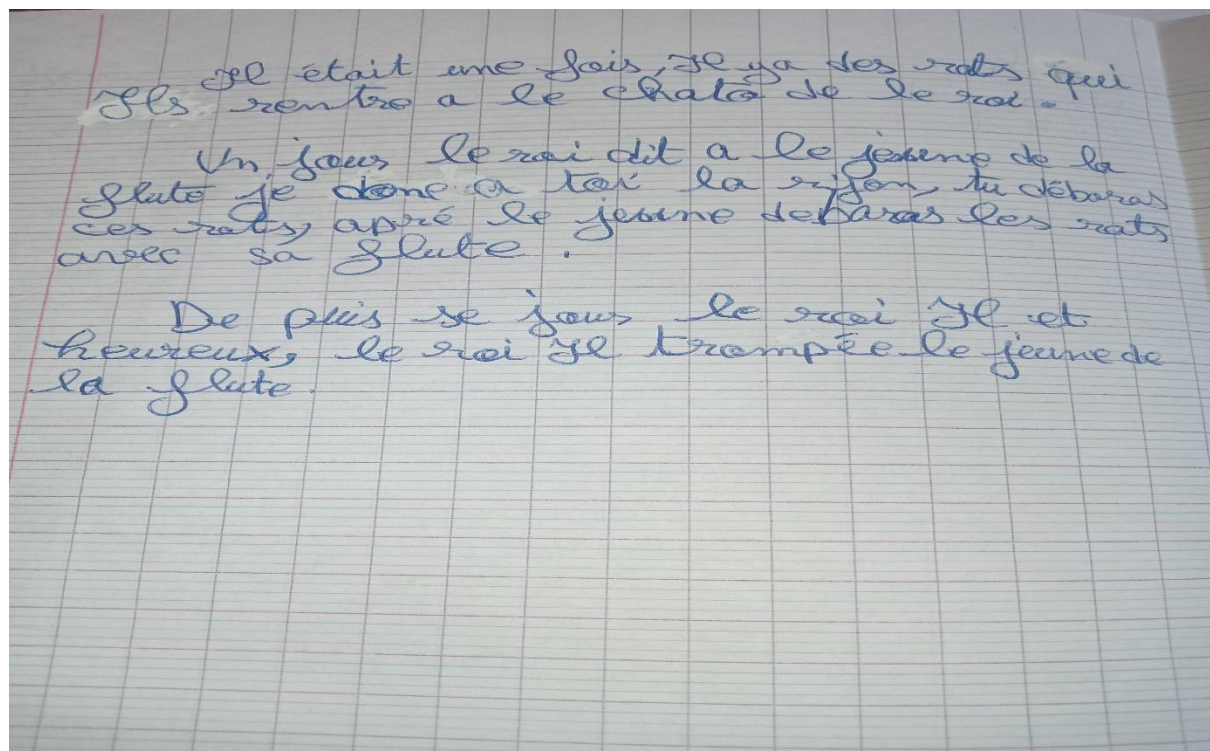 Il était une fois, Il ya des rats qui
Ils rentre a le chato de le roi.
Un jour le roi dit a le jeune de la
flute je done a toi la rifon, tu débaras
ces rats, appré le jeune debaras les rats
avec sa flute.
De puis se jour le roi Il et
heureux, le roi Il trompée le jeune de
la flute.